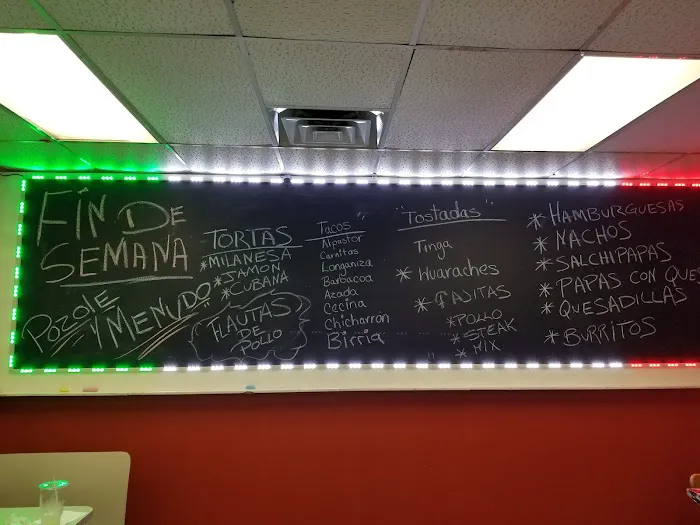 FÍN DE
SEMANA
POZOLE
Y MENUDO
TORTAS
* MILANESA
* JAMON
* CUBANA
FLAUTAS
DE
POLLO
Tacos
Alpastor
Carnitas
Longaniza
Barbacoa
Azada
Cecina
Chicharron
Birria
"Tostadas"
Tinga
* Huaraches
* FAJITAS
* POLLO
* STEAK
* MIX
* HAMBURGUESAS
* NACHOS
* SALCHIPAPAS
* PAPAS CON QUE
* QUESADILLAS
* BURRITOS